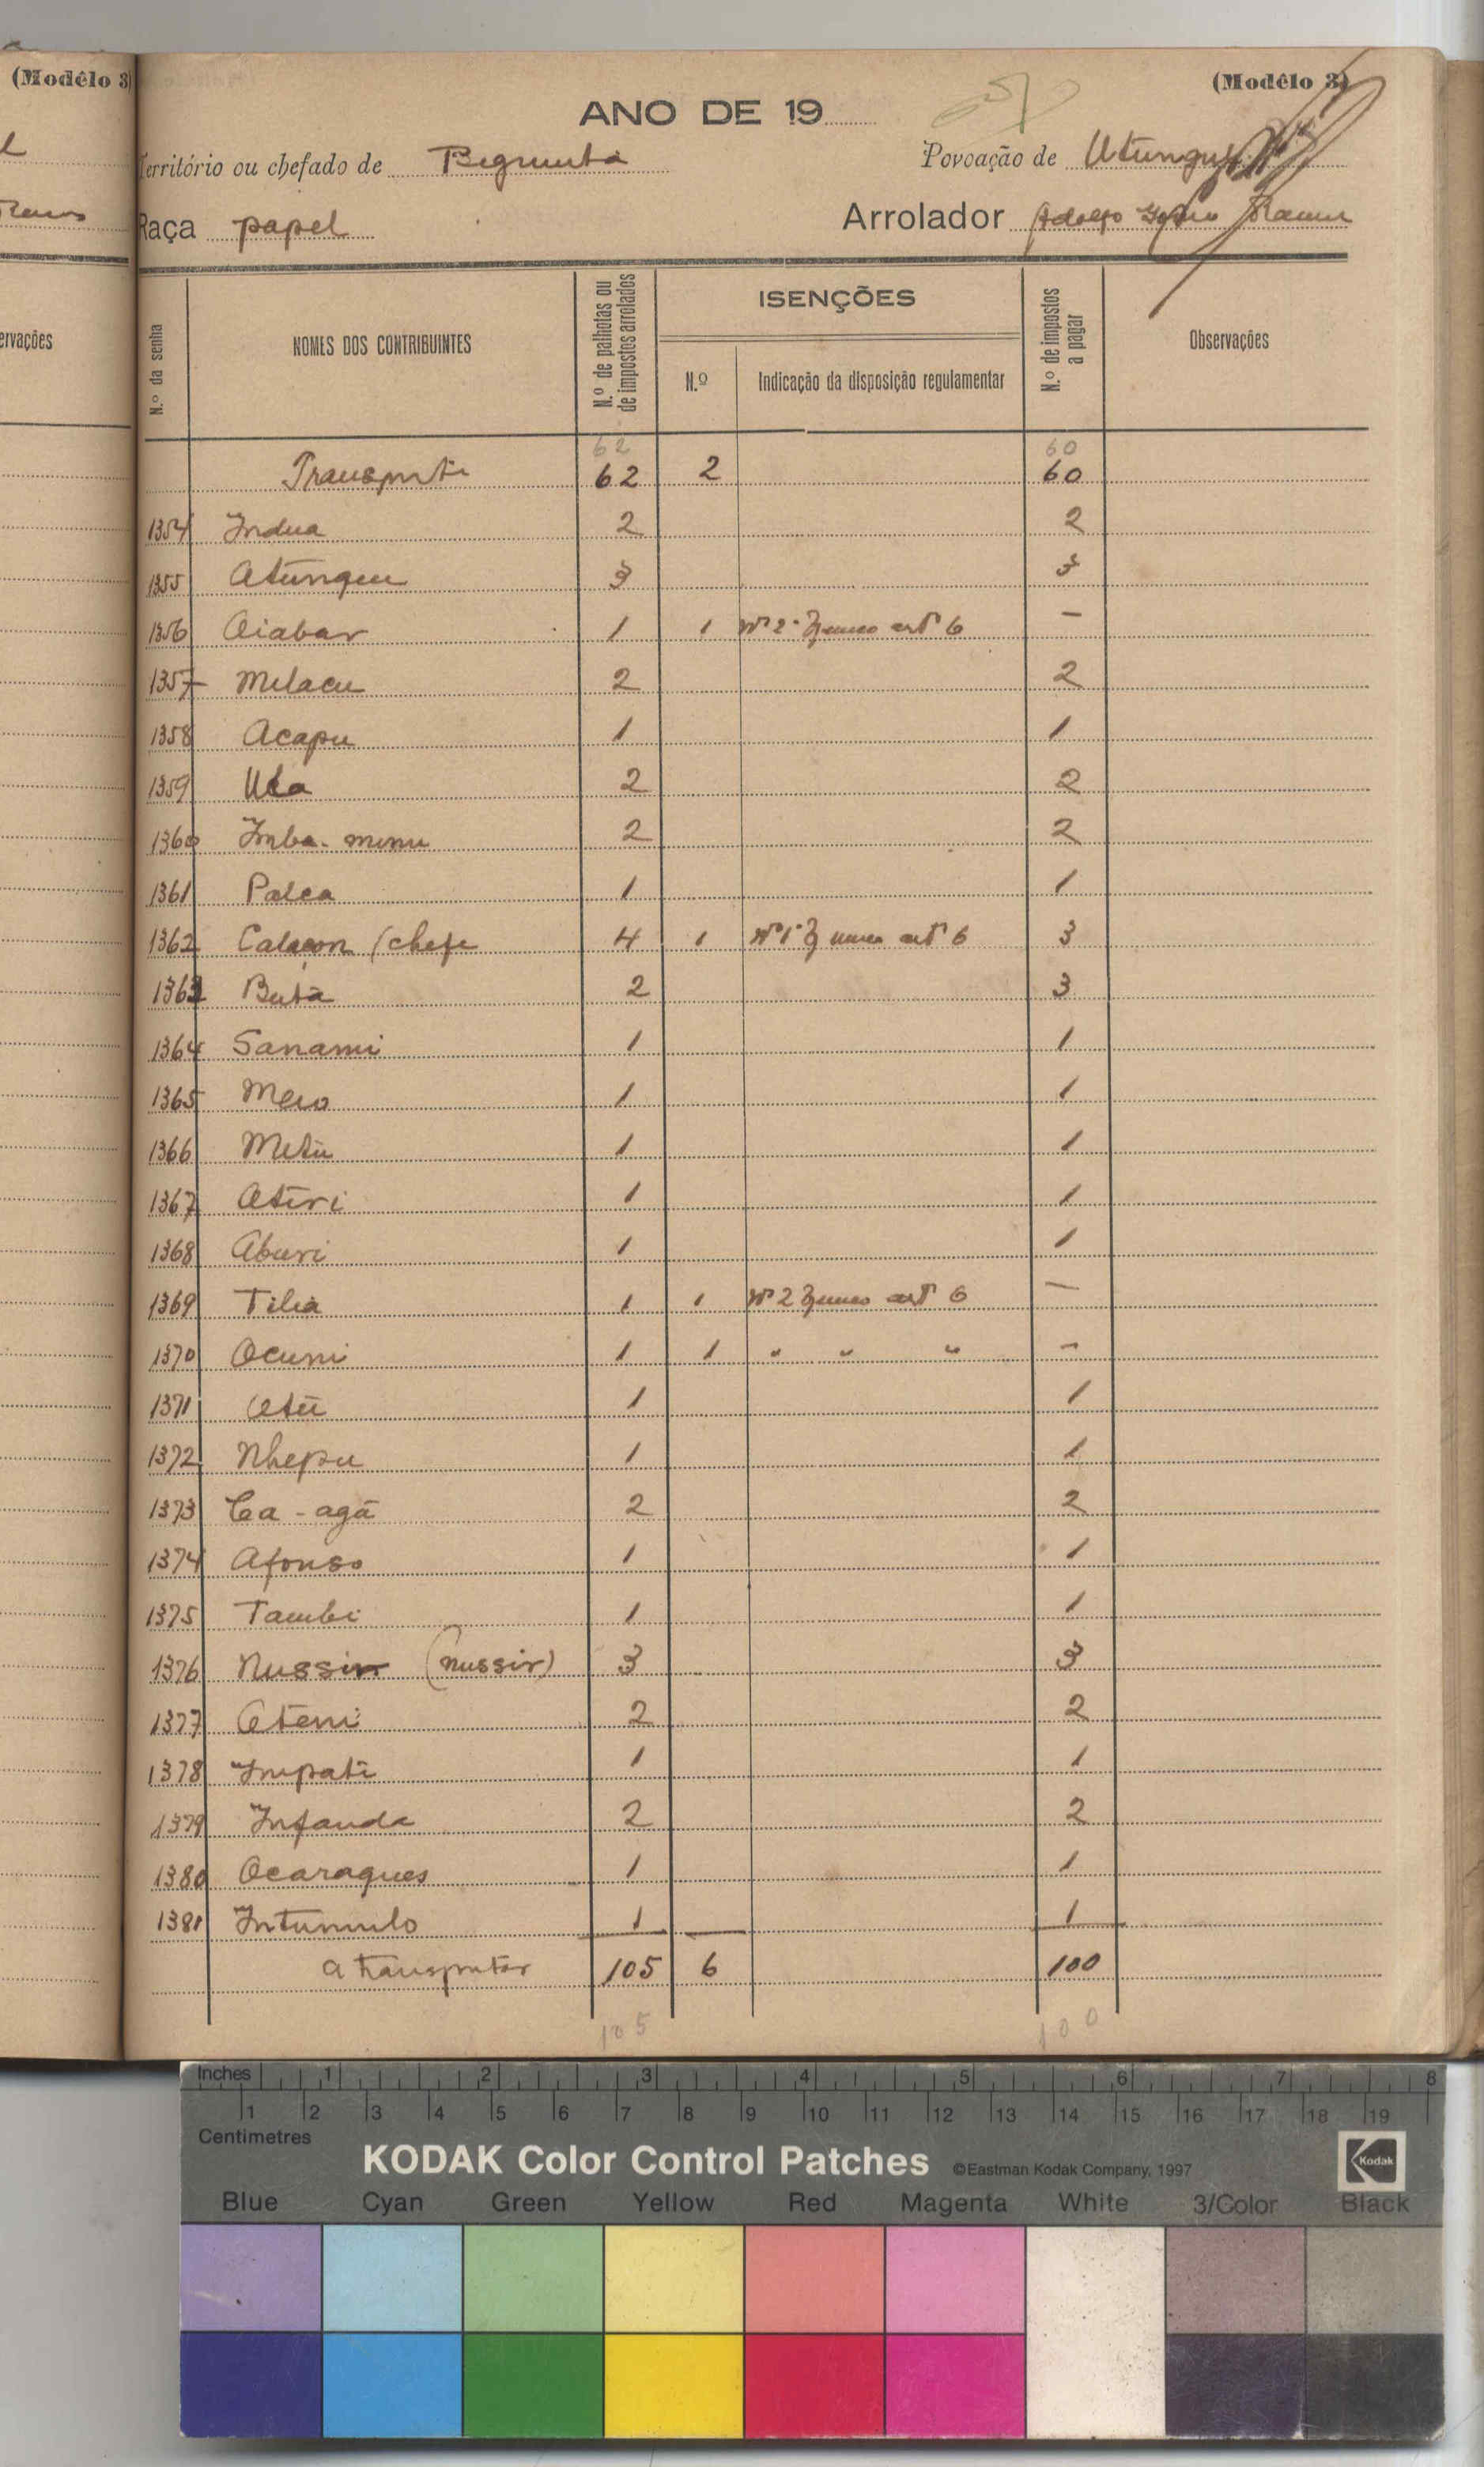 (Modêlo 3)
(Modêlo 3)
ANO DE 19
Território ou chefado de Begumta
Povoação de
Raça papel
Arrolador Adolfo Ramos
ervações
N.º da senha
NOMES DOS CONTRIBUINTES
N.º de palhotas ou de impostos arrolados
ISENÇÕES
N.º
Indicação da disposição regulamentar
N.º de impostos a pagar
Observações
62 60
Transporte 62 2 60
1354 Indua 2 2
1355 Atungcu 3 3
1356 Aiabar 1 1 Nº 2º § unico artº 6 —
1357 Milacu 2 2
1358 Acapu 1 1
1359 Ula 2 2
1360 Imba-menu 2 2
1361 Palca 1 1
1362 Calaçon (chefe 4 1 Nº 1º § unico artº 6 3
1363 Butà 2 3
1364 Sanami 1 1
1365 Meio 1 1
1366 Metù 1 1
1367 Atiri 1 1
1368 Aburi 1 1
1369 Tilià 1 1 Nº 2 § unico artº 6 —
1370 Ocuni 1 1 " " " —
1371 Otù 1 1
1372 Nhepu 1 1
1373 Ca-agà 2 2
1374 Afonso 1 1
1375 Tambi 1 1
1376 Nussir (nussir) 3 3
1377 Oteni 2 2
1378 Impati 1 1
1379 Infanda 2 2
1380 Ocaragues 1 1
1381 Intumulo 1 1
a transportar 105 6 100
105 100
Inches 1 2 3 4 5 6 7 8
1 2 3 4 5 6 7 8 9 10 11 12 13 14 15 16 17 18 19
Centimetres
KODAK Color Control Patches ©Eastman Kodak Company, 1997 Kodak
Blue Cyan Green Yellow Red Magenta White 3/Color Black